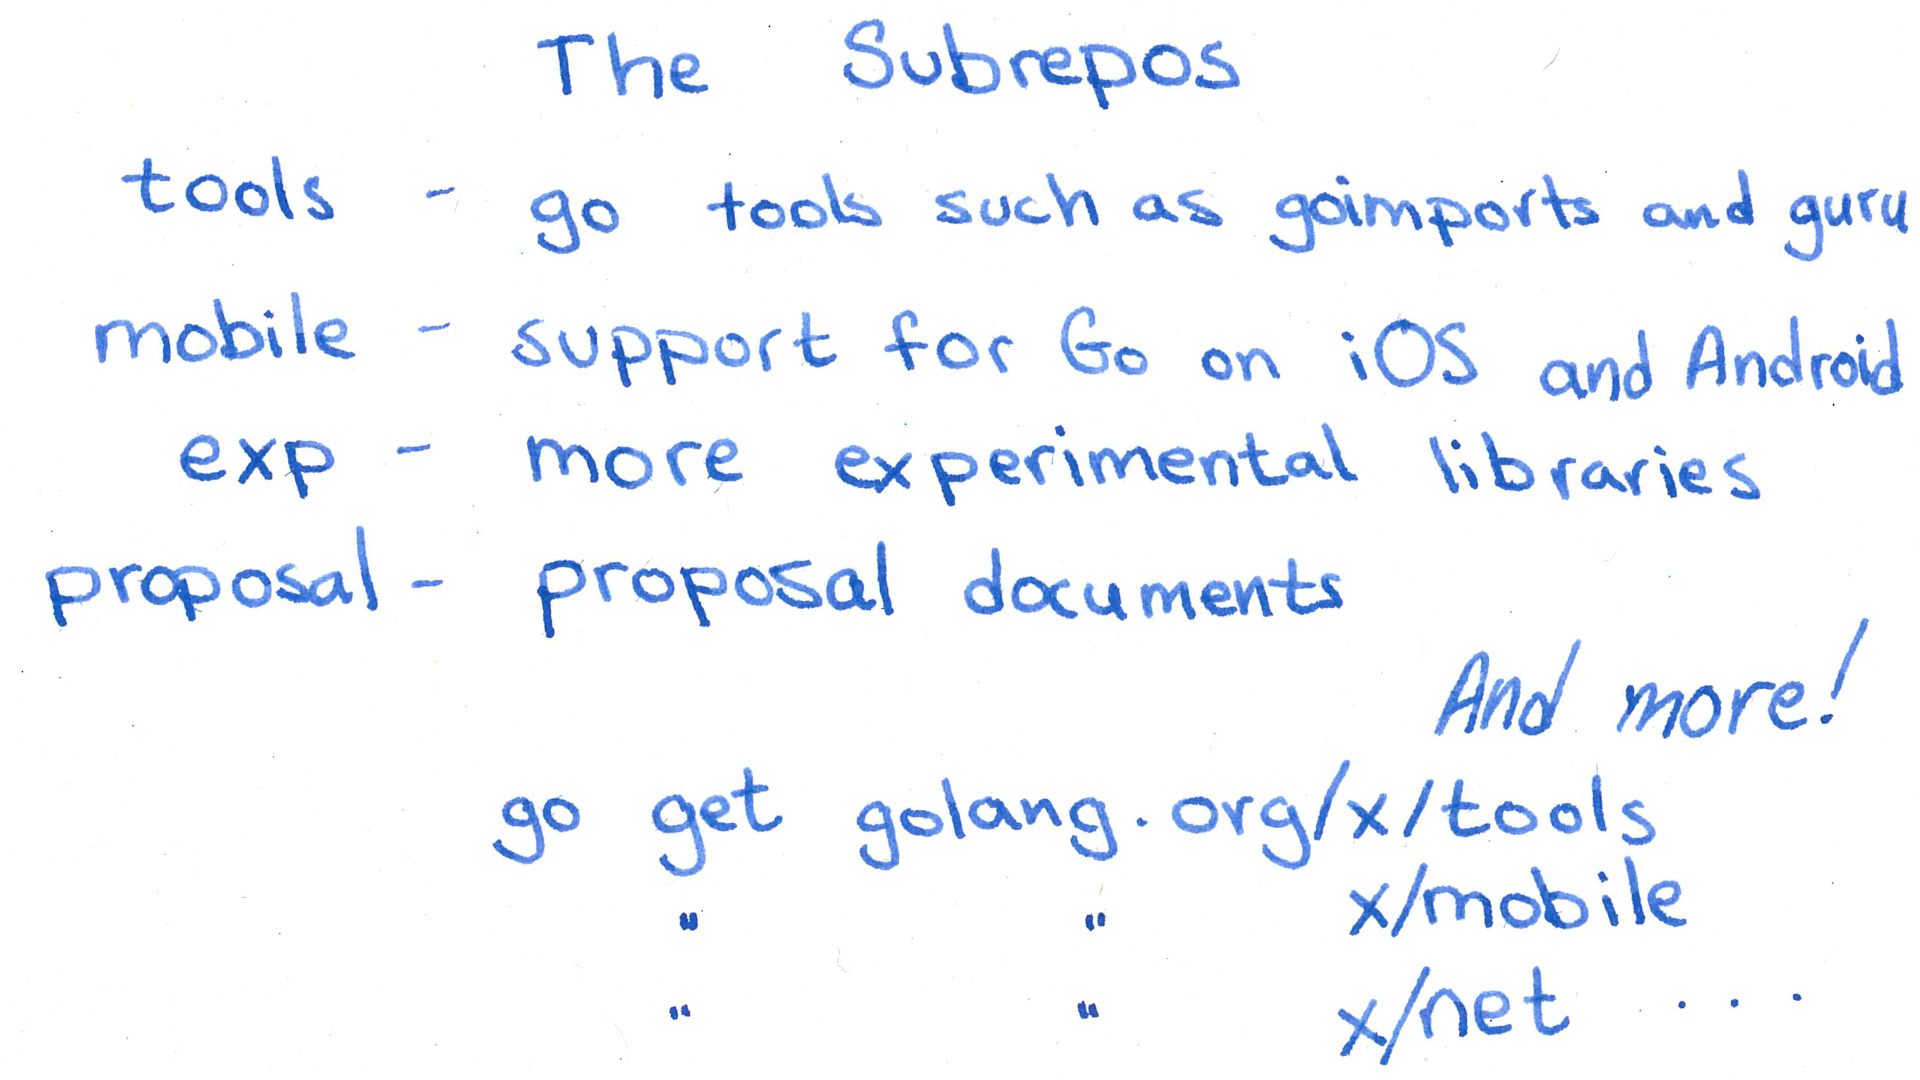 The Subrepos
tools - go tools such as goimports and guru
mobile - support for Go on iOS and Android
exp - more experimental libraries
proposal - proposal documents
And more!
go get golang.org/x/tools
" " x/mobile
" " x/net ...